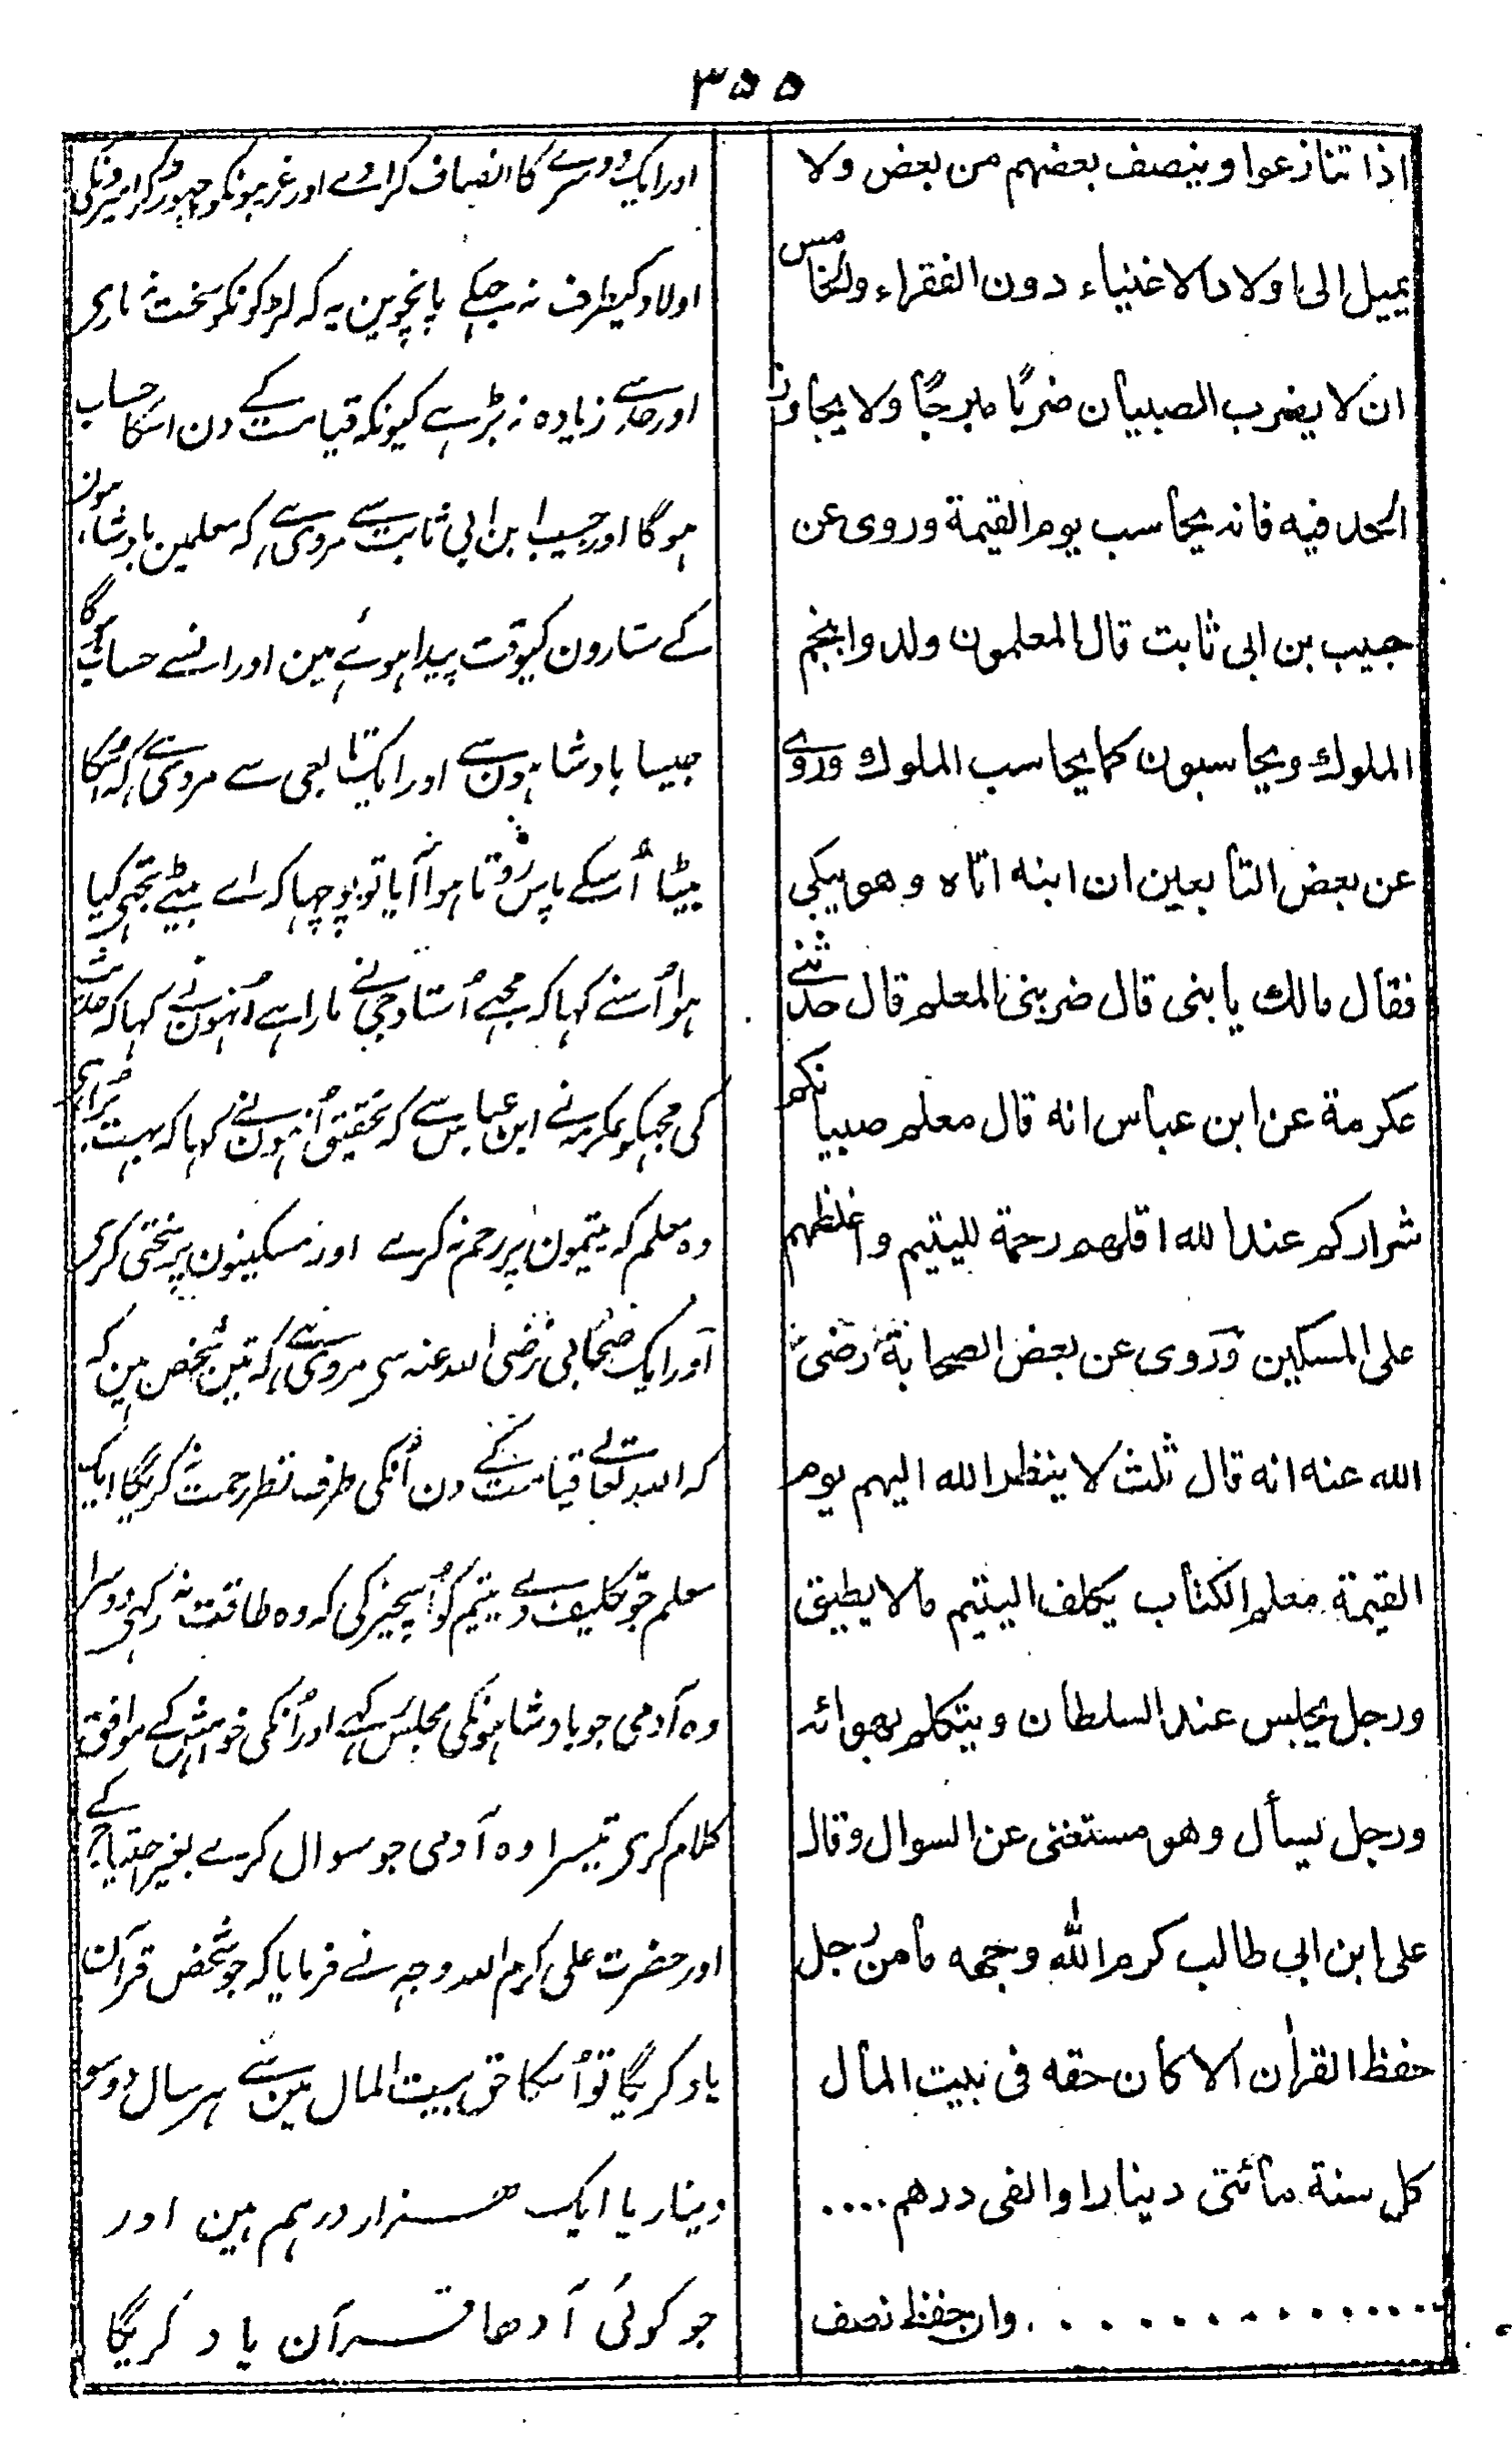 ۳۵۵
اذا تنازعوا وینصف بعضهم من بعض ولا
یمیل الی اولاد الاغنیاء دون الفقراء والخامس
ان لا یضرب الصبیان ضربًا مبرحًا ولا یجاوز
الحد فیه فانه یحاسب یوم القیمة وروی عن
حبیب بن ابی ثابت قال المعلمون ولدوا بنجم
الملوك ویحاسبون كما یحاسب الملوك وروی
عن بعض التابعین ان ابنه اتاه وهو یبكی
فقال مالك یا بنی قال ضربنی المعلم قال حدثنی
عكرمة عن ابن عباس انه قال معلم صبیانكم
شراركم عند الله اقلهم رحمة للیتیم واغلظهم
علی المسكین وروی عن بعض الصحابة رضی
الله عنه انه قال ثلث لا ینظر الله الیهم یوم
القیمة معلم الكتاب یكلف الیتیم مالا یطیق
ورجل یجلس عند السلطان ویتكلم بهوائه
ورجل یسأل وهو مستغنی عن السوال وقال
علی ابن ابی طالب كرم الله وجهه مامن رجل
حفظ القرأن الا كان حقه فی بیت المال
كل سنة مائتی دینارا والفی درهم ....
................ وان حفظ نصف
اور ایک دوسرے کا انصاف کراوے اور غریبونکو چہوڑ کر امیرونکی
اولاد کیطرف نہ جھکے پانچوین یہ کہ لڑکونکو سخت نہ ماری
اور حد سے زیادہ نہ بڑہے کیونکہ قیامت کے دن اسکا حساب
ہوگا اور حبیب ابن ابی ثابت سے مروی ہے کہ معلمین بادشاہون
کے ستارون کیوقت پیدا ہوئے ہین اور انسے حساب ہوگا
جیسا بادشاہون سے اور ایک تابعی سے مروی ہے کہ اُسکا
بیٹا اُسکے پاس روتا ہوا آیا تو پوچہا کہ اے بیٹے تجہے کیا
ہوا اُسنے کہا کہ مجہے اُستاد جی نے مارا ہے اُنہون نے کہا کہ حدیث
کی مجہکو عکرمہ نے ابن عباس سے کہ تحقیق اُنہون نے کہا کہ بہت بُرا ہی
وہ معلم کہ یتیمون پر رحم نہ کرے اور مسکینون پر سختی کری
اور ایک صحابی رضی اللہ عنہ سی مروی ہے کہ تین شخص ہین کہ
کہ اللہ تعالے قیامت کے دن اُنکی طرف نظر رحمت نکریگا ایک
معلم جو تکلیف دے یتیم کو اُسچیز کی کہ وہ طاقت نہ رکہی دوسرا
وہ آدمی جو بادشاہونکی مجلس مین رہے اور اُنکی خواہش کے موافق
کلام کری تیسرا وہ آدمی جو سوال کرے بغیر احتیاج کے
اور حضرت علی کرم اللہ وجہہ نے فرمایا کہ جو شخص قرآن
یاد کریگا تو اُسکا حق بیت المال مین سے ہر سال دوسو
دینار یا ایک ہزار درہم ہین اور
جو کوئی آدھا قرآن یاد کریگا